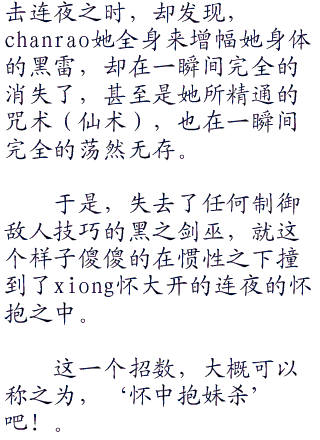 击连夜之时，却发现，
chanrao她全身来增幅她身体
的黑雷，却在一瞬间完全的
消失了，甚至是她所精通的
咒术（仙术），也在一瞬间
完全的荡然无存。
于是，失去了任何制御
敌人技巧的黑之剑巫，就这
个样子傻傻的在惯性之下撞
到了xiong怀大开的连夜的怀
抱之中。
这一个招数，大概可以
称之为，‘怀中抱妹杀’
吧！。